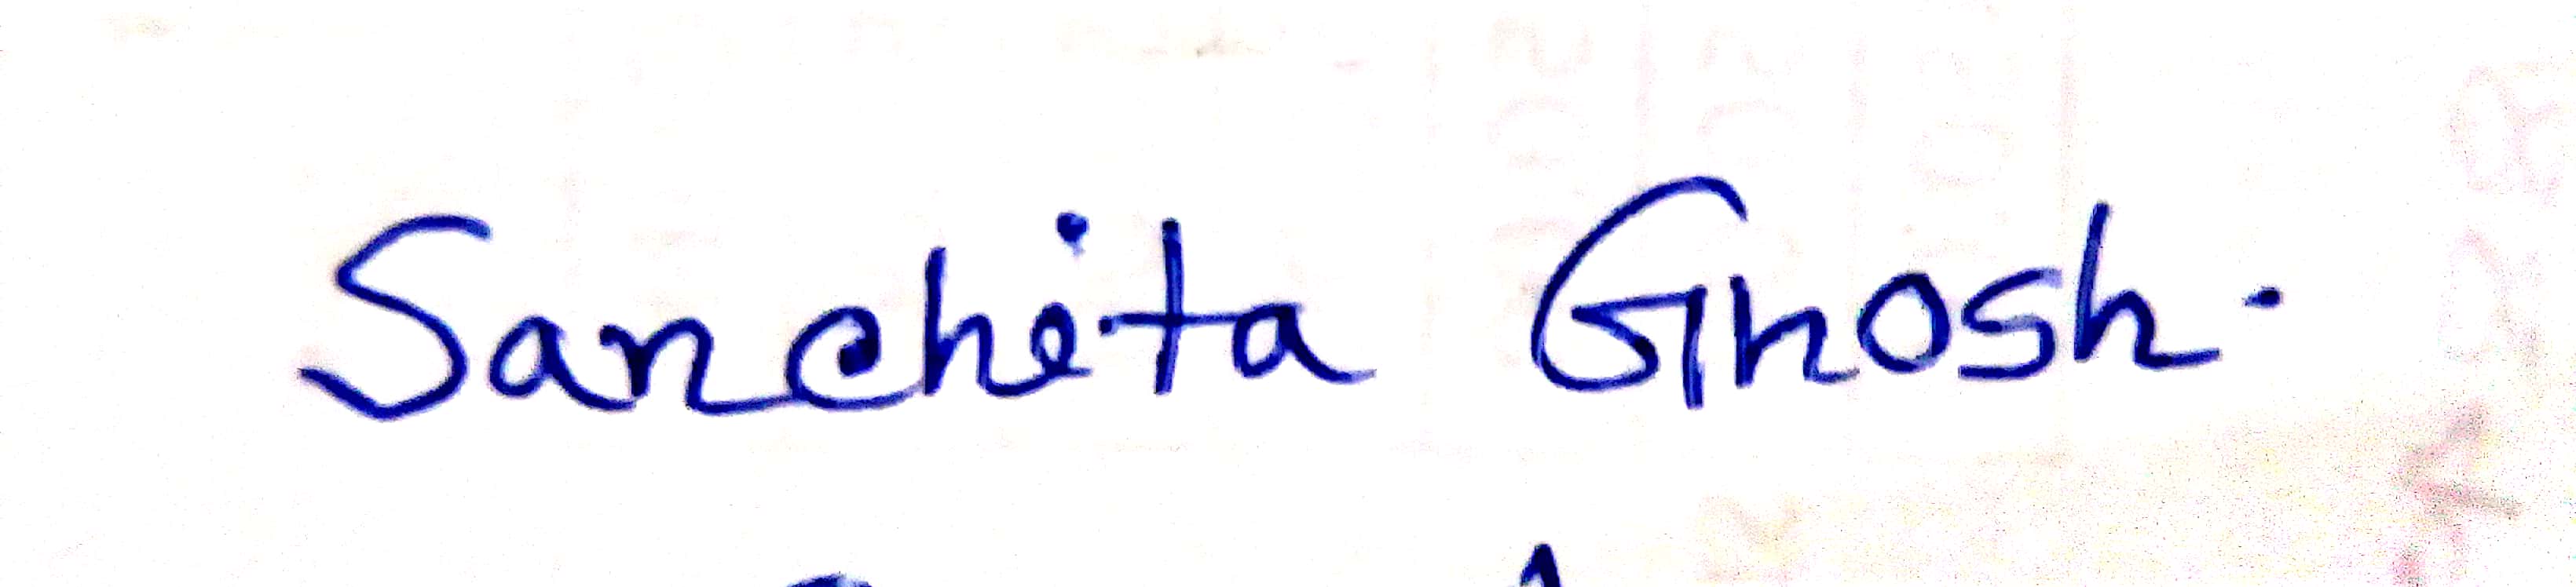 Sanchita Ghosh.